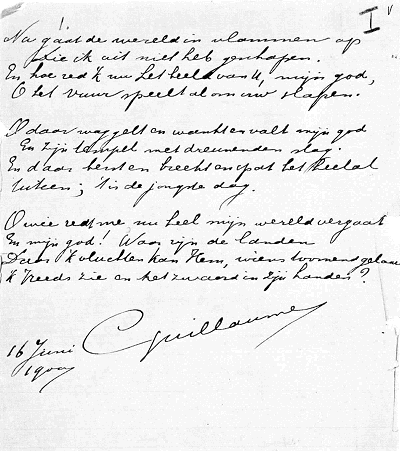 I
Nu gaat de wereld in vlammen op
die ik uit niet heb geschapen.
En hoe red 'k nu het beeld van U, mijn god,
O het vuur speelt al om uw slapen.
O daar waggelt en wankt en valt mijn god
En zijn tempel met dreunenden slag.
En daar berst en breekt en spat het heelal
Uiteen; 't is de jongste dag.
O wie redt me nu heel mijn wereld vergaat
En mijn god! Waar zijn de landen
Daar 'k vluchten kan Hem, wiens toornend gelaat
'k Reeds zie en het zwaard in zijn handen?
Guillaume
16 Juni